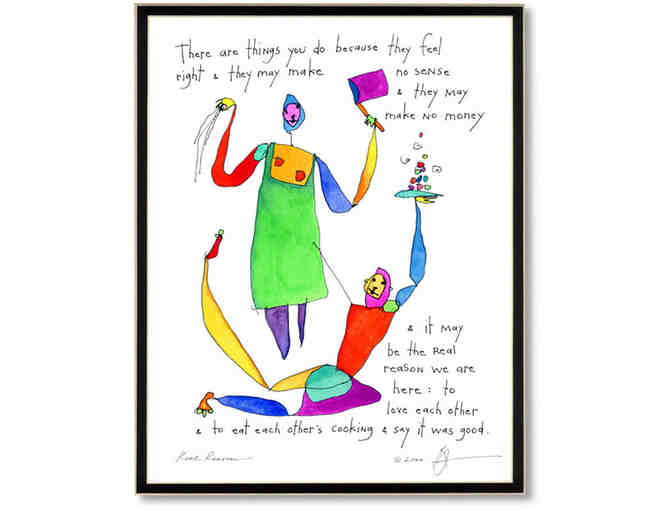 There are things you do because they feel
right & they may make no sense
& they may
make no money
& it may
be the Real
reason we are
here: to
love each other
& to eat each other's cooking & say it was good.
Real Reason © 2000